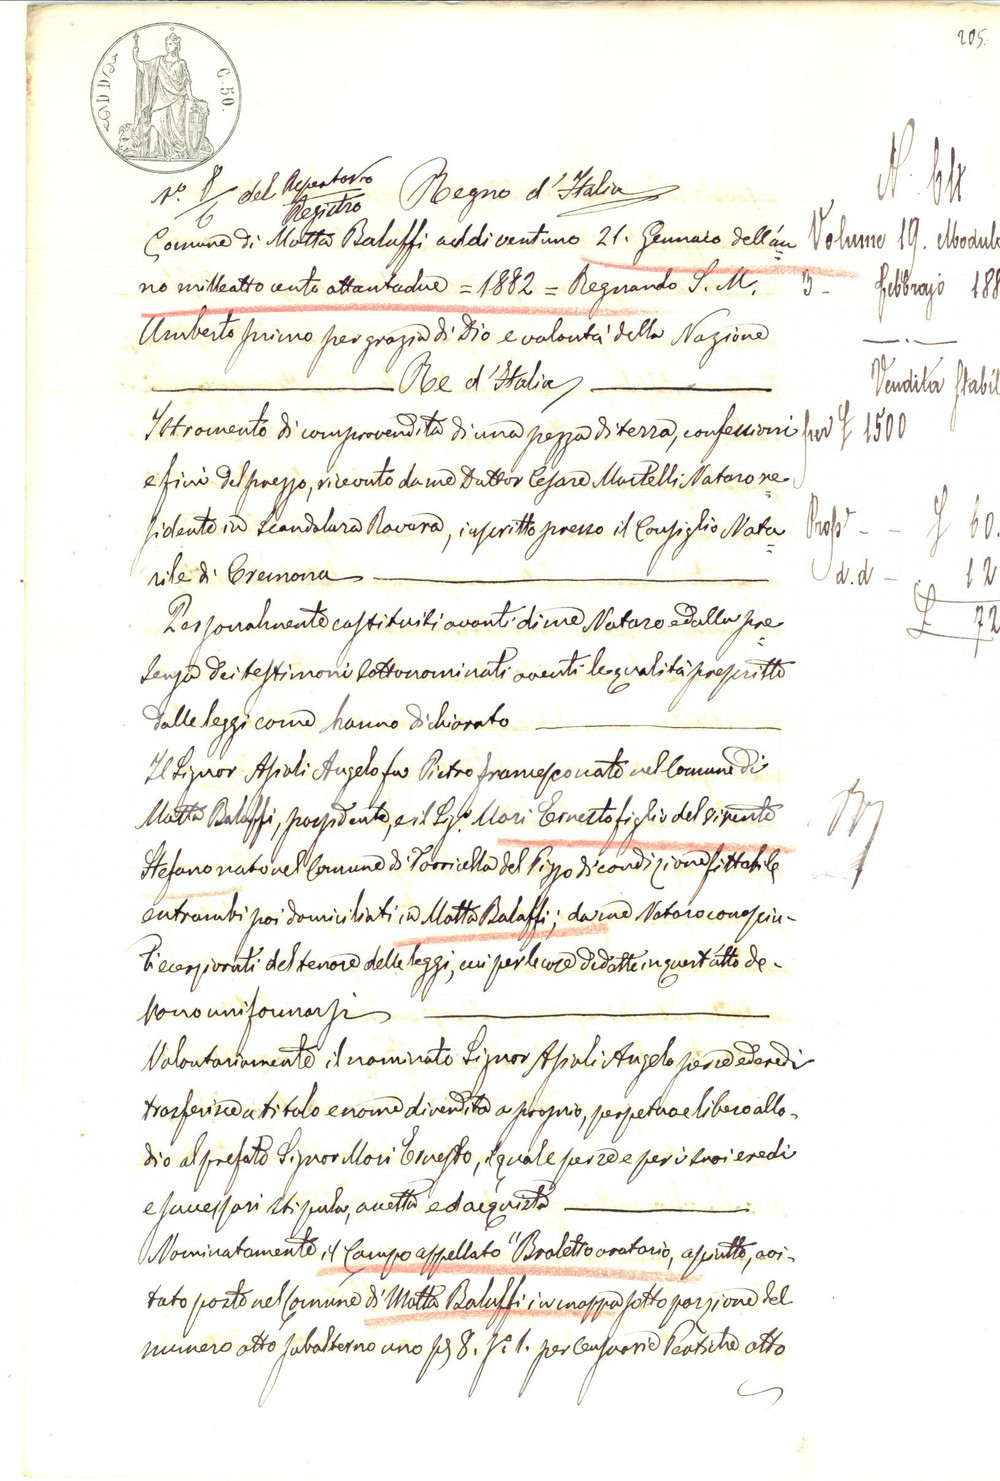 205.
C. 50.
N.° 8/6 del Repertorio Registro Regno d'Italia
Comune di Motta Baluffi addi ventuno 21. Gennaio dell'an=
no milleottocento ottantadue = 1882 = Regnando S. M.
Umberto primo per grazia di Dio e volontà della Nazione
Re d'Italia
Istromento di comprovendita di una pezza di terra, confessioni
e fini del prezzo, ricevuto da me Dottor Cesare Martelli Notaro re=
sidente in Scandolara Ravara, inscritto presso il Consiglio Nota=
rile di Cremona
Personalmente costituiti avanti di me Notaro e dalla pre=
senza dei testimoni sottonominati aventi le qualità prescritte
dalle leggi come hanno dichiarato
Il Signor Aspoli Angelo fu Pietro nato nel Comune di
Motta Baluffi, possidente, e il Sig.r Mori Ernesto figlio del vivente
Stefano nato nel Comune di Torricella del Pizzo di condizione fittabile
entrambi poi domiciliati in Motta Baluffi; da me Notaro conosciu-
ti cerziorati del tenore delle leggi, cui per le cose dedotte in quest'atto de-
vono uniformarsi
Volontariamente il nominato Signor Aspoli Angelo per se ed eredi
trasferisce a titolo e nome di vendita a proprio, perpetuo e libero allo-
dio al prefato Signor Mori Ernesto, il quale per se e per i suoi eredi
e successori stipula, accetta ed acquista
Nominatamente il Campo appellato "Broletto oratorio, asciutto, avi-
tato posto nel Comune di Motta Baluffi in mappa sotto porzione del
numero otto subalterno uno 8. 1. per Censuarie Pertiche otto
N. 64
Volume 19. Modulo
3 - Febbrajo 188
Vendita Stabil
per £ 1500
Prop.e - - £ 60.
d.d - 12
£ 72